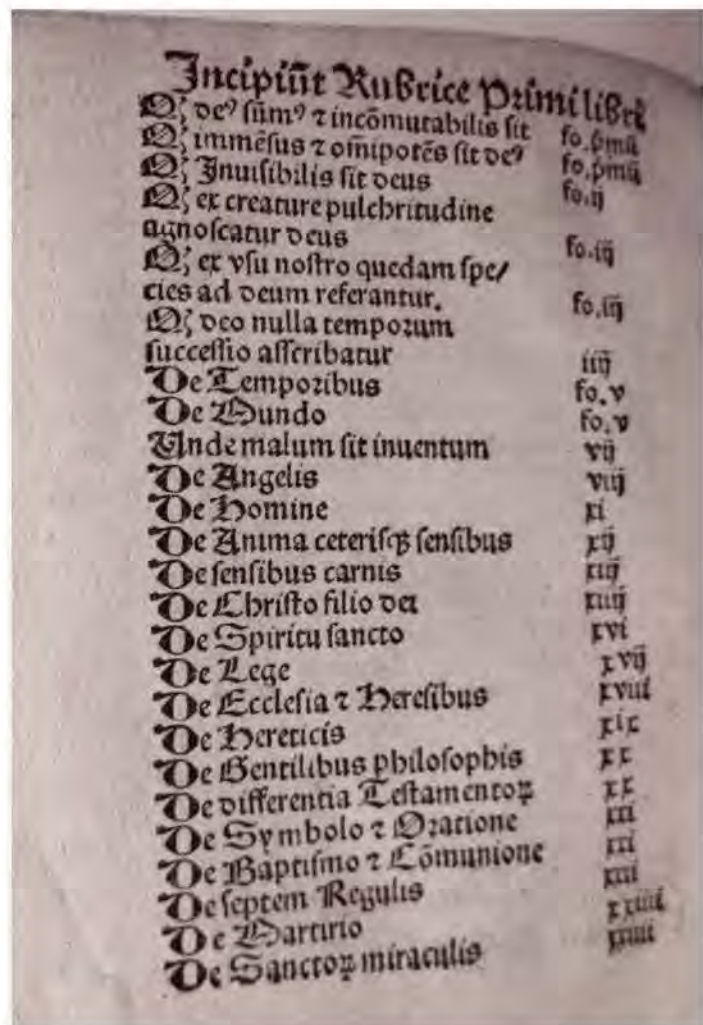 Incipiūt Rubrice Primi libri
Qꝫ deꝰ sūmꝰ ⁊ incōmutabilis sit fo.pmū
Qꝫ immēsus ⁊ om̄ipotēs sit deꝰ fo.pmū
Qꝫ Inuisibilis sit deus fo.ij
Qꝫ ex creature pulchritudine
agnoscatur deus fo.iij
Qꝫ ex vsu nostro quedam spe/
cies ad deum referantur. fo.iij
Qꝫ deo nulla temporum
successio asscribatur iiij
De Temporibus fo.v
De Mundo fo.v
Unde malum sit inuentum vij
De Angelis viij
De Homine xi
De Anima ceterisqꝫ sensibus xij
De sensibus carnis xiij
De Christo filio dei xiiij
De Spiritu sancto xvi
De Lege xvij
De Ecclesia ⁊ Heresibus xviii
De Hereticis xix
De Gentilibus philosophis xx
De differentia Testamentoꝝ xx
De Symbolo ⁊ Oratione xxi
De Baptismo ⁊ Cōmunione xxi
De septem Regulis
De Martirio xxiiii
De Sanctoꝝ miraculis xxiiii